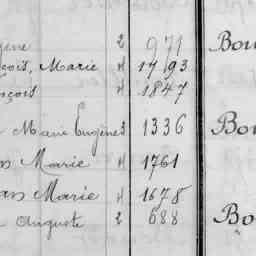 gène 2 971 Bou
çois, Marie 4 1793
nçois 4 1847
Marie Eugène 3 1336 Bou
Marie 4 1761
Marie 4 1678
Auguste 2 688 Bo